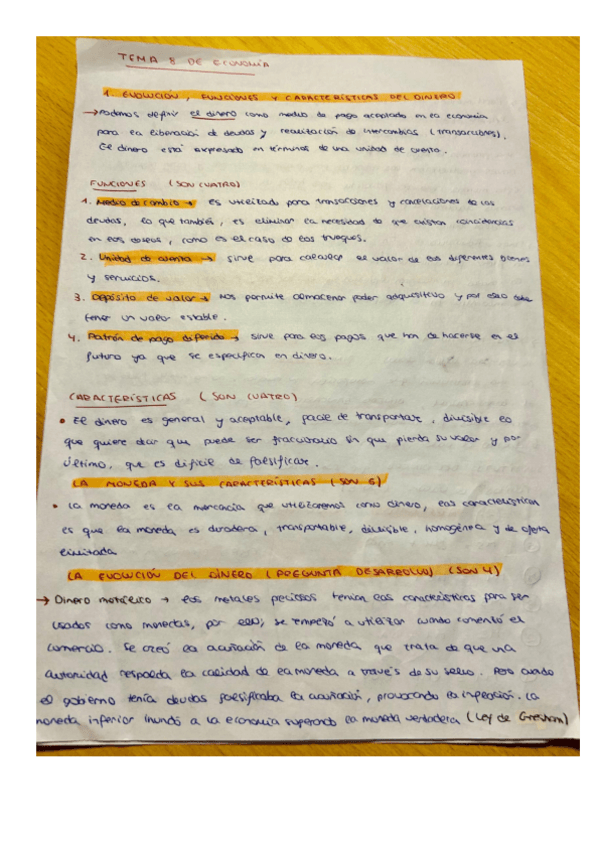 TEMA 8 DE ECONOMÍA
1. EVOLUCIÓN, FUNCIONES Y CARACTERÍSTICAS DEL DINERO
→ Podemos definir el dinero como medio de pago aceptado en la economía
para la liberación de deudas y realización de intercambios (transacciones).
El dinero está expresado en términos de una unidad de cuenta.
FUNCIONES (SON CUATRO)
1. Medio de cambio → es utilizado para transacciones y cancelaciones de las
deudas, lo que también, es eliminar la necesidad de que existan coincidencias
en los deseos, como es el caso de los trueques.
2. Unidad de cuenta → sirve para calcular el valor de los diferentes bienes
y servicios.
3. Depósito de valor → Nos permite almacenar poder adquisitivo y por ello debe
tener un valor estable.
4. Patrón de pago diferido → sirve para los pagos que han de hacerse en el
futuro ya que se especifica en dinero.
CARACTERÍSTICAS (SON CUATRO)
• El dinero es general y aceptable, fácil de transportar, divisible lo
que quiere decir que puede ser fraccionario sin que pierda su valor y por
último, que es difícil de falsificar.
LA MONEDA Y SUS CARACTERÍSTICAS (SON 5)
• La moneda es la mercancía que utilizaremos como dinero, las características
es que la moneda es duradera, transportable, divisible, homogénea y de oferta
limitada
LA EVOLUCIÓN DEL DINERO (PREGUNTA DESARROLLO) (SON 4)
→ Dinero metálico → los metales preciosos tenían las características para ser
usados como monedas, por ello, se empezó a utilizar cuando comentó el
comercio. Se creó la acuñación de la moneda que trata de que una
autoridad respalda la calidad de la moneda a través de su sello. Pero cuando
el gobierno tenía deudas falsificaba la acuñación, provocando la inflación. La
moneda inferior inundó a la economía superando la moneda verdadera (Ley de Gresham)